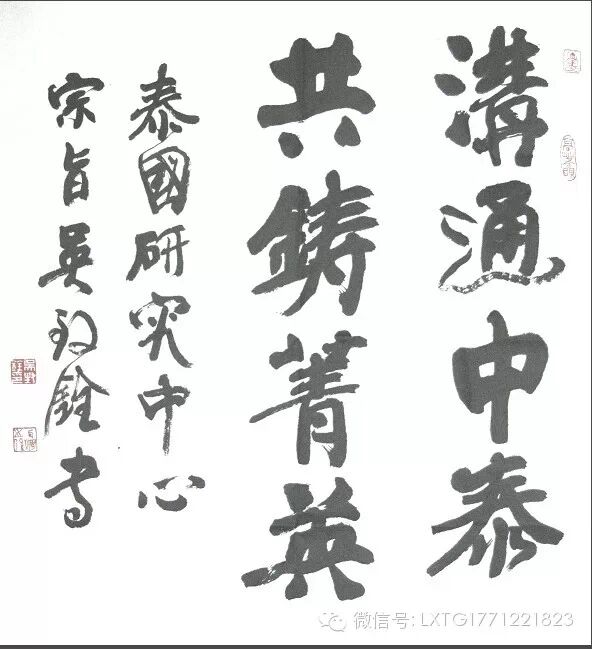 溝通中泰
共鑄菁英
泰國研究中心
宗旨吳銓书
微信号: LXTG1771221823